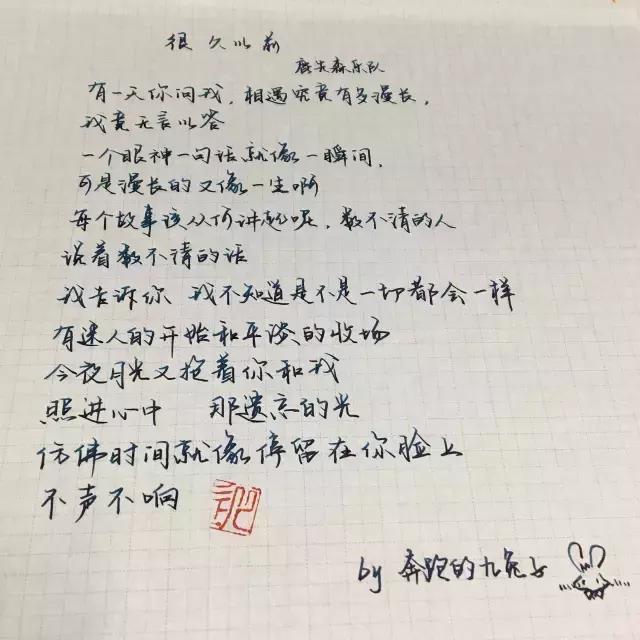 很久以前
鹿先森乐队
有一天你问我，相遇究竟有多漫长，
我竟无言以答
一个眼神一句话就像一瞬间，
可是漫长的又像一生啊
每个故事该从何讲起呢，数不清的人
说着数不清的话
我告诉你 我不知道是不是一切都会一样
有迷人的开始和平淡的收场
今夜月光又抱着你和我
照进心中 那遗忘的光
仿佛时间就像停留在你脸上
不声不响
by 奔跑的九兔子